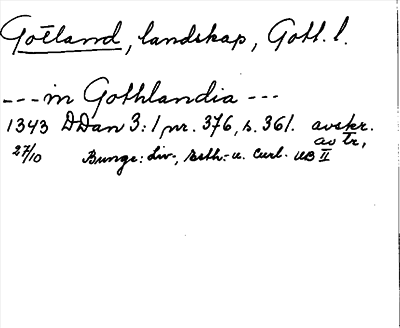 Gotland, landskap, Gotl. l.
--- in Gothlandia ---
1343 DDan 3:1 nr. 376, s. 361. avskr.
av tr,
27/10 Bunge: Liv-, Esth- u. Curl. UB II